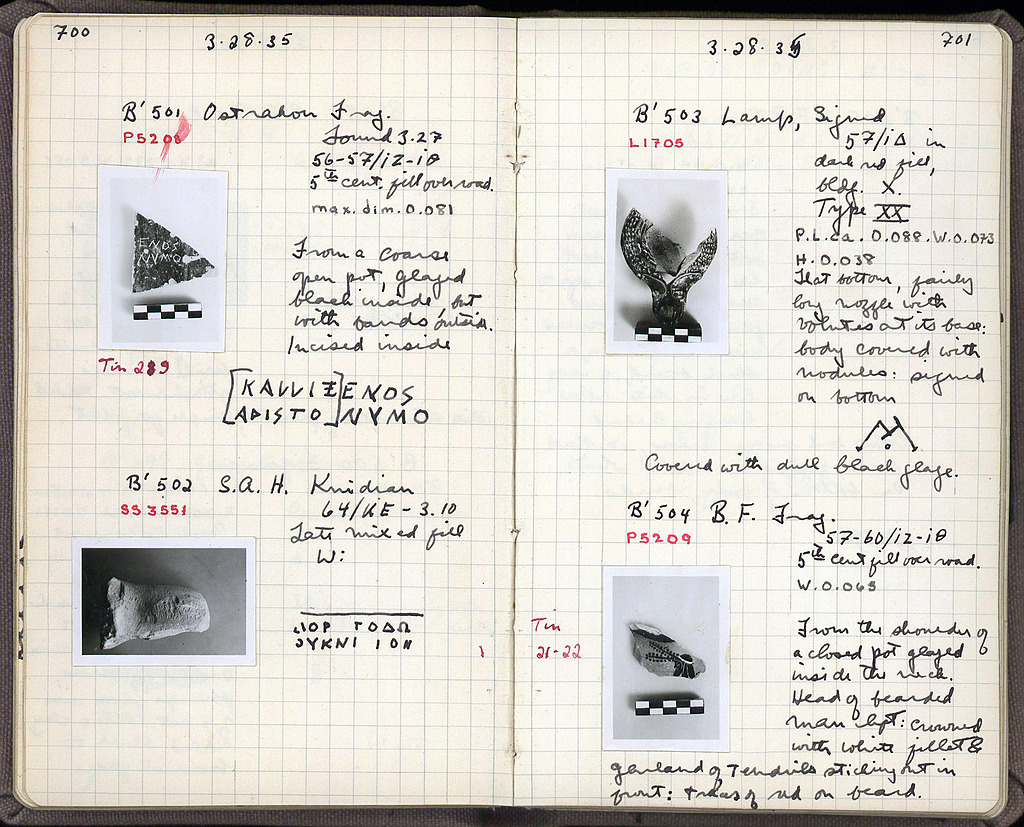 700
3·28·35
B' 501 Ostrakon Frag.
P5208
Found 3.27
56-57/ΙΖ-ΙΘ
5th cent. fill over road.
max. dim. 0.081
ΕΝΟΣ
ΝΥΜΟ
From a coarse
open pot, glazed
black inside but
with bands outside.
Incised inside
Tin 289
[ΚΑLLΙΞ]ΕΝΟS
[ΑΡΙSΤΟ]ΝΥΜΟ
B' 502 S.A.H. Knidian
SS 3551
64/ΚΕ - 3.10
Late mixed fill
W:
ΙΟΡ ΓΟΔΩ
ΥΚΝΙ ΙΟΝ
701
3·28·35
B' 503 Lamp, Signed
L1705
57/ΙΔ in
dark red fill,
bldg. X.
Type XX
P.L. ca. 0.088. W. 0.073
H. 0.038
Flat bottom, fairly
long nozzle with
volutes at its base:
body covered with
nodules: signed
on bottom
Covered with dull black glaze.
B' 504 B.F. Frag.
P5209
57-60/ΙΖ-ΙΘ
5th cent fill over road.
W. 0.065
Tin
21-22
From the shoulder of
a closed pot glazed
inside the neck.
Head of bearded
man left: crowned
with white fillet &
garland of tendrils sticking out in
front: traces of red on beard.